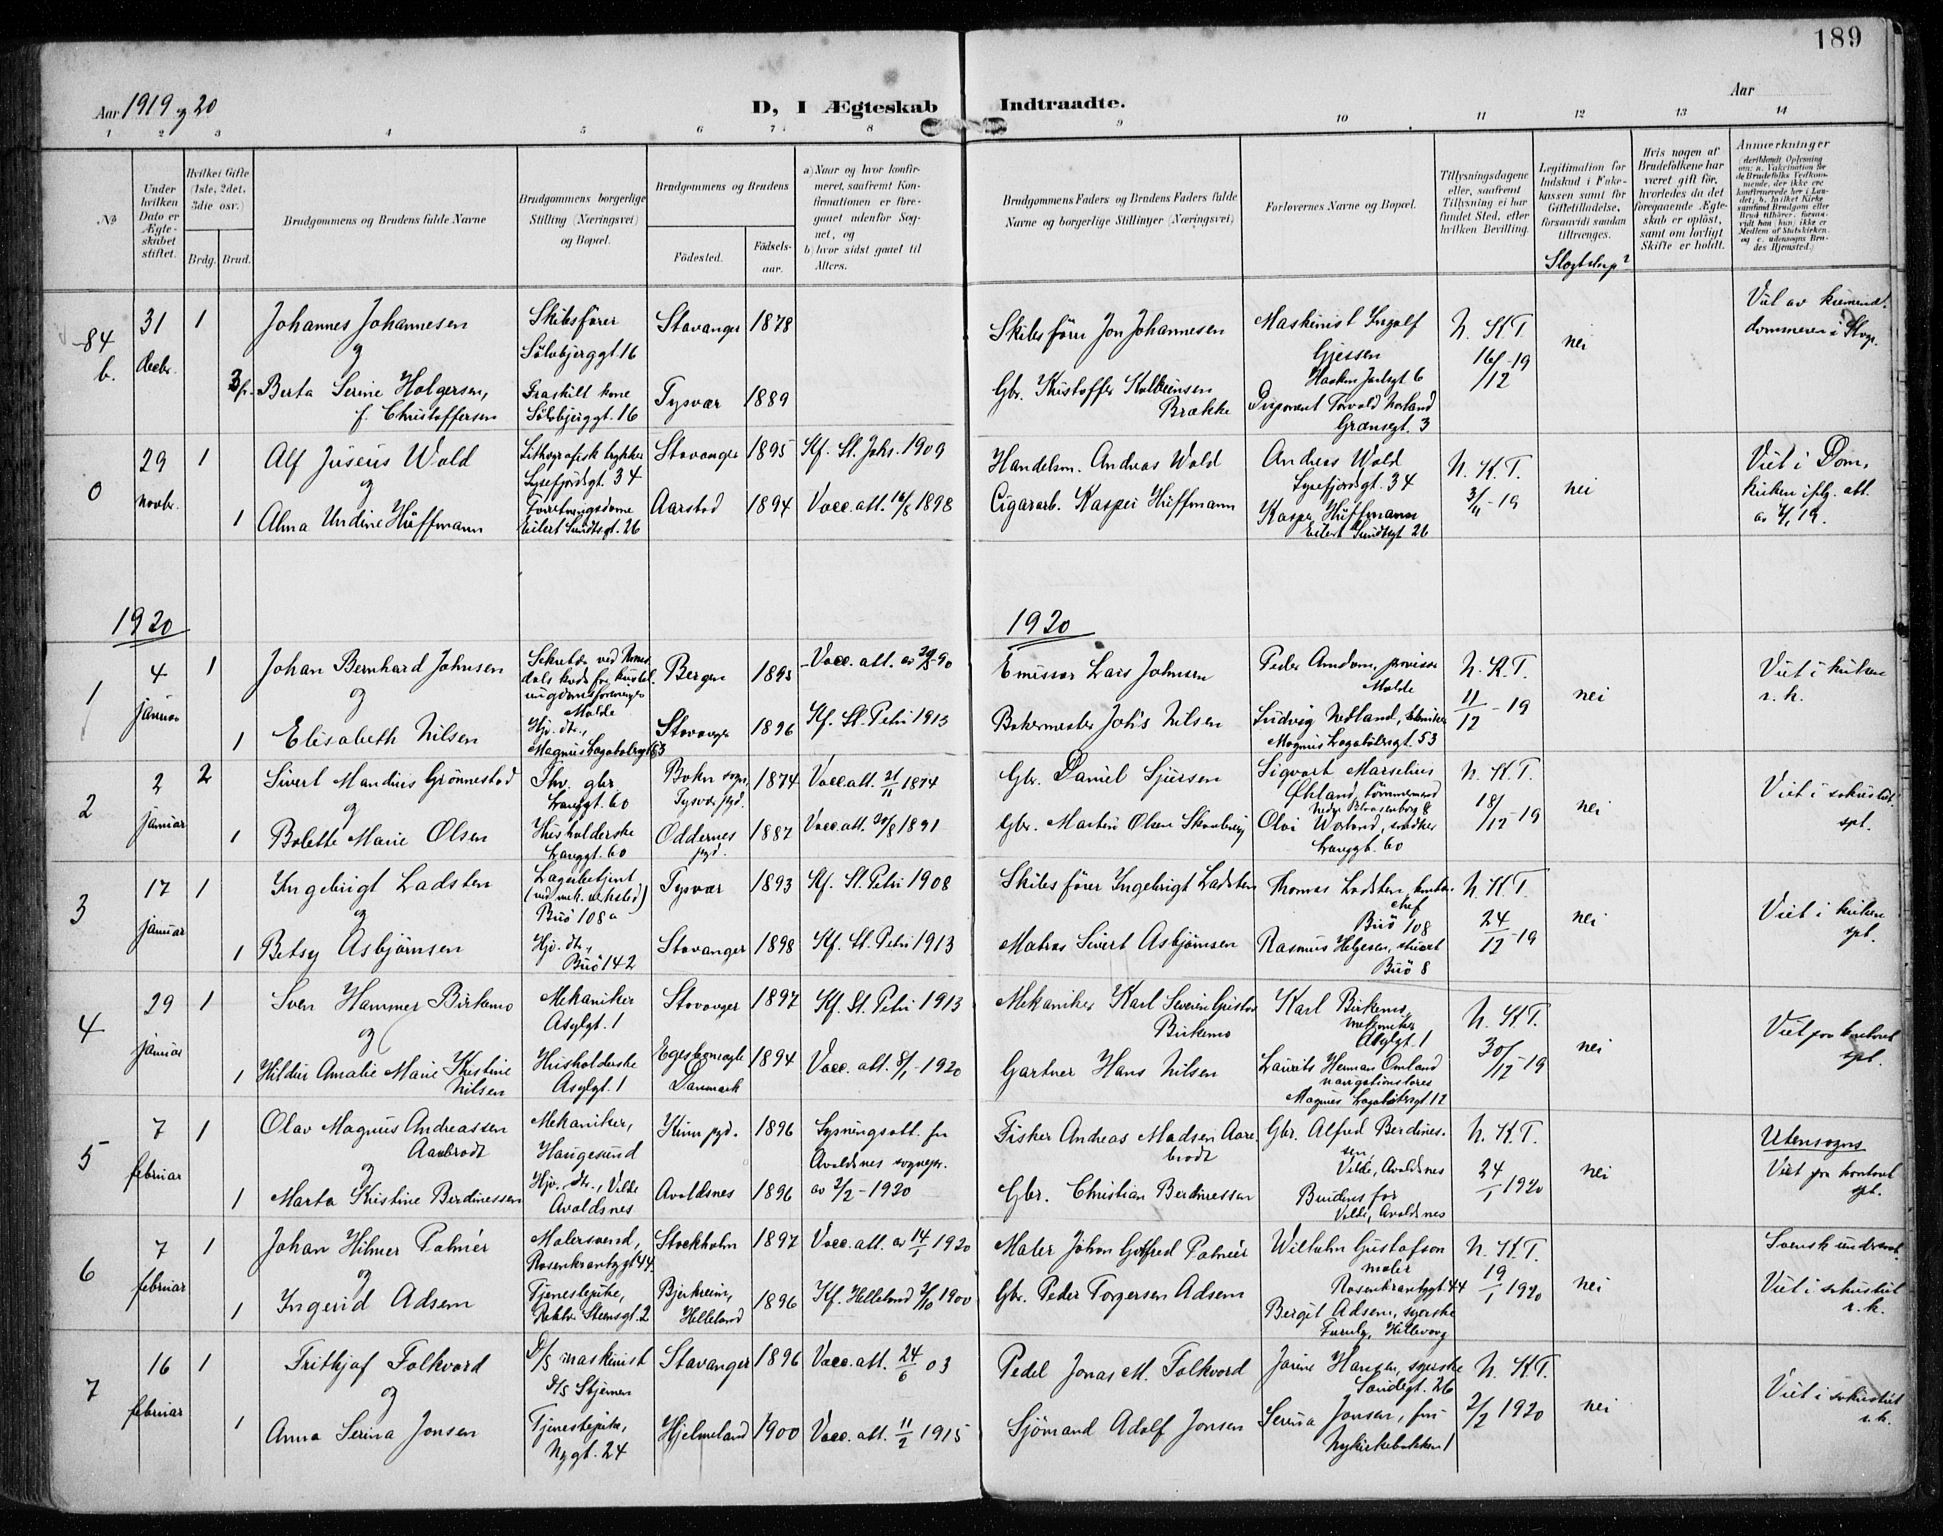 189
Aar 1919 og 20
D, I Ægteskab Indtraadte.
Aar
1 2 3 4 5 6 7 8 9 10 11 12 13 14
No
Under hvilken Dato er Ægteskabet stiftet.
Hvilket Gifte (1ste, 2det, 3die osv.)
Brdg. Brud.
Brudgommens og Brudens fulde Navne
Brudgommens borgerlige Stilling (Næringsvei) og Bopæl.
Brudgommens og Brudens
Födested.
Födselsaar.
a) Naar og hvor konfirmeret, saafremt Konfirmationen er foregaaet udenfor Sognet, og
b) hvor sidst gaaet til Alters.
Brudgommens Faders og Brudens Faders fulde Navne og borgerlige Stillinger (Næringsvei)
Forlovernes Navne og Bopæl.
Tillysningsdagene eller, saafremt Tillysning ei har fundet Sted, efter hvilken Bevilling.
Legitimation for Indskud i Enkekassen samt for Giftetilladelse, forsaavidt saadan tiltrænges.
Slegtskap?
Hvis nogen af Brudefolkene har været gift för, hvorledes da det foregaaende Ægteskab er oplöst, samt om lovligt Skifte er holdt.
Anmerkninger
84 b.
31 decbr.
1
Johannes Johannesen
og
3 fr. Berta Serine Holgersen,
f. Christoffersen
Skibsfører
Sølvbjerggt. 16
Fraskilt kone
Sølvbjerggt. 16
Stavanger 1878
Tysvær 1889
Skibsfører Jon Johannesen
Gbr. Kristoffer Kolbeinsen
Brække
Maskinist Ingolf
Gjessen
Haakon Jarlsgt 6
Disponent Torvald Norland
Grænsegt. 3
N. K. T.
16/12-19
nei
Viet av
dommeren i Stvgr.
0
29 novbr.
1
Alf Juseus Wold
og
1 Alma Undine Hüffmann
Lithografisk trykker
Lysefjordsgt. 34
Forretningsdame
Eilert Sundtsgt. 26
Stavanger 1895 Kf. St. Johs. 1909
Aarstad 1894 Vacc. att. 16/8 1898
Handelsm. Andreas Wold
Cigararb. Kasper Hüffmann
Andreas Wold
Lysefjordsgt. 34
Kasper Hüffmann
Eilert Sundtsgt. 26
N. K. T.
3/11-19
nei
Viet i Dom-
kirken iflg. att.
1920
1920
1
4 januar
1
Johan Bernhard Johnsen
og
1 Elisabeth Nilsen
Molde
Hjv. dtr.,
Magnus Lagabøtersgt 53
Bergen 1893
Stavanger 1896 Kf. St. Petri 1913
Emissær Lars Johnsen
Bakermester Johs Nilsen
Molde
Ludvig Netland,
Magnus Lagabøtersgt. 53
N. K. T.
11/12-19
nei
Viet i kirken
r. h.
2
2 januar
2
Sivert Mandius Grønnestad
og
1 Bolette Marie Olsen
Fhv. gbr
Langgt. 60
Husholderske
Langgt. 60
Bokn sogn,
Tysvær pgd. 1874 Vacc. att. 21/11 1874
Oddernes pgd. 1887 Vacc. att. 20/8 1891
Gbr. Daniel Sjursen
Gbr. Martin Olsen
Sigvart Marselius
Økland, tømmermand
Nedre Blaasenborg 8
Olai Worland, snedker
Langgt. 60
N. K. T.
18/12-19
nei
Viet i sakristiet
spt.
3
17 januar
1
Ingebrigt Ladsten
og
1 Betsy Asbjørnsen
Lagerbetjent
(ved mek. verksted)
Buø 108a
Hjv. dtr.,
Buø 142
Tysvær 1893 Kf. St. Petri 1908
Stavanger 1898 Kf. St. Petri 1913
Skibsfører Ingebrigt Ladsten
Matros Sivert Asbjørnsen
Thomas Ladsten, kontor-
chef
Buø 108
Rasmus Helgesen, stuert
Buø 8
N. K. T.
24/12-19
nei
Viet i kirken
spt.
4
29 januar
1
Sven Hammer Birkemo
og
1 Hildur Amalie Marie Kristine
Nilsen
Mekaniker
Asylgt. 1
Husholderske
Asylgt. 1
Stavanger 1897 Kf. St. Petri 1913
Danmark 1894 Vacc. att. 8/1-1920
Mekaniker Karl Severin Gustav
Birkemo
Gartner Hans Nilsen
Karl Birkemo,
mekaniker
Asylgt. 1
Laurits Herman Omland
navigationslærer
Magnus Lagabøtersgt 12
N. K. T.
30/12-19
nei
Viet paa kontoret
spt.
5
7 februar
1
Olav Magnus Andreassen
Aarbrodt
og
1 Marta Kristine Berdinessen
Mekaniker,
Haugesund
Hjv. dtr., Velde
Avaldsnes
Kinn pgd. 1896
Avaldsnes 1896
Lysningsatt. fra
Avaldsnes sognepr.
av 2/2-1920
Fisker Andreas Madsen Aar-
brodt
Gbr. Christian Berdinessen
Gbr. Alfred Berdines-
sen,
Velde, Avaldsnes
Brudens far
Velde, Avaldsnes
N. K. T.
24/1 1920
nei
Utensogns
Viet paa kontoret
spt.
6
7 februar
1
Johan Hilmer Palmér
og
1 Ingerid Adsem
Malersvend,
Rosenkrantzgt 44.
Tjenestepike,
Rektor Steensgt. 2
Stockholm 1897 Vacc. att. av 14/1 1920
Bjerkreim,
Helleland 1896 Kf. Helleland 2/10 1900
Maler Johan Gotfred Palmér
Gbr. Peder Torgersen Adsem
Wilhelm Gustafson
maler
Rosenkrantzgt. 44
Bergit Adsem, syerske
Furuly, Hillevaag
N. K. T.
19/1 1920
nei
Svensk undersaat.
Viet i sakristiet
r. h.
7
16 februar
1
Fritjof Folkvord
og
1 Anna Serina Jonsen
D/S maskinist
D/S Stjernen
Tjenestepike,
Nygt. 24
Stavanger 1896 Vacc. att. 24/6 03
Hjelmeland 1900 Vacc. att. 11/2 1915
Pedel Jonas M. Folkvord
Sjømand Adolf Jonsen
Jorine Hansen, syerske
Sandegt. 26
Serina Jonsen, fru
Nykirkebakken 1
N. K. T.
2/2 1920
nei
Viet i sakristiet
r. h.